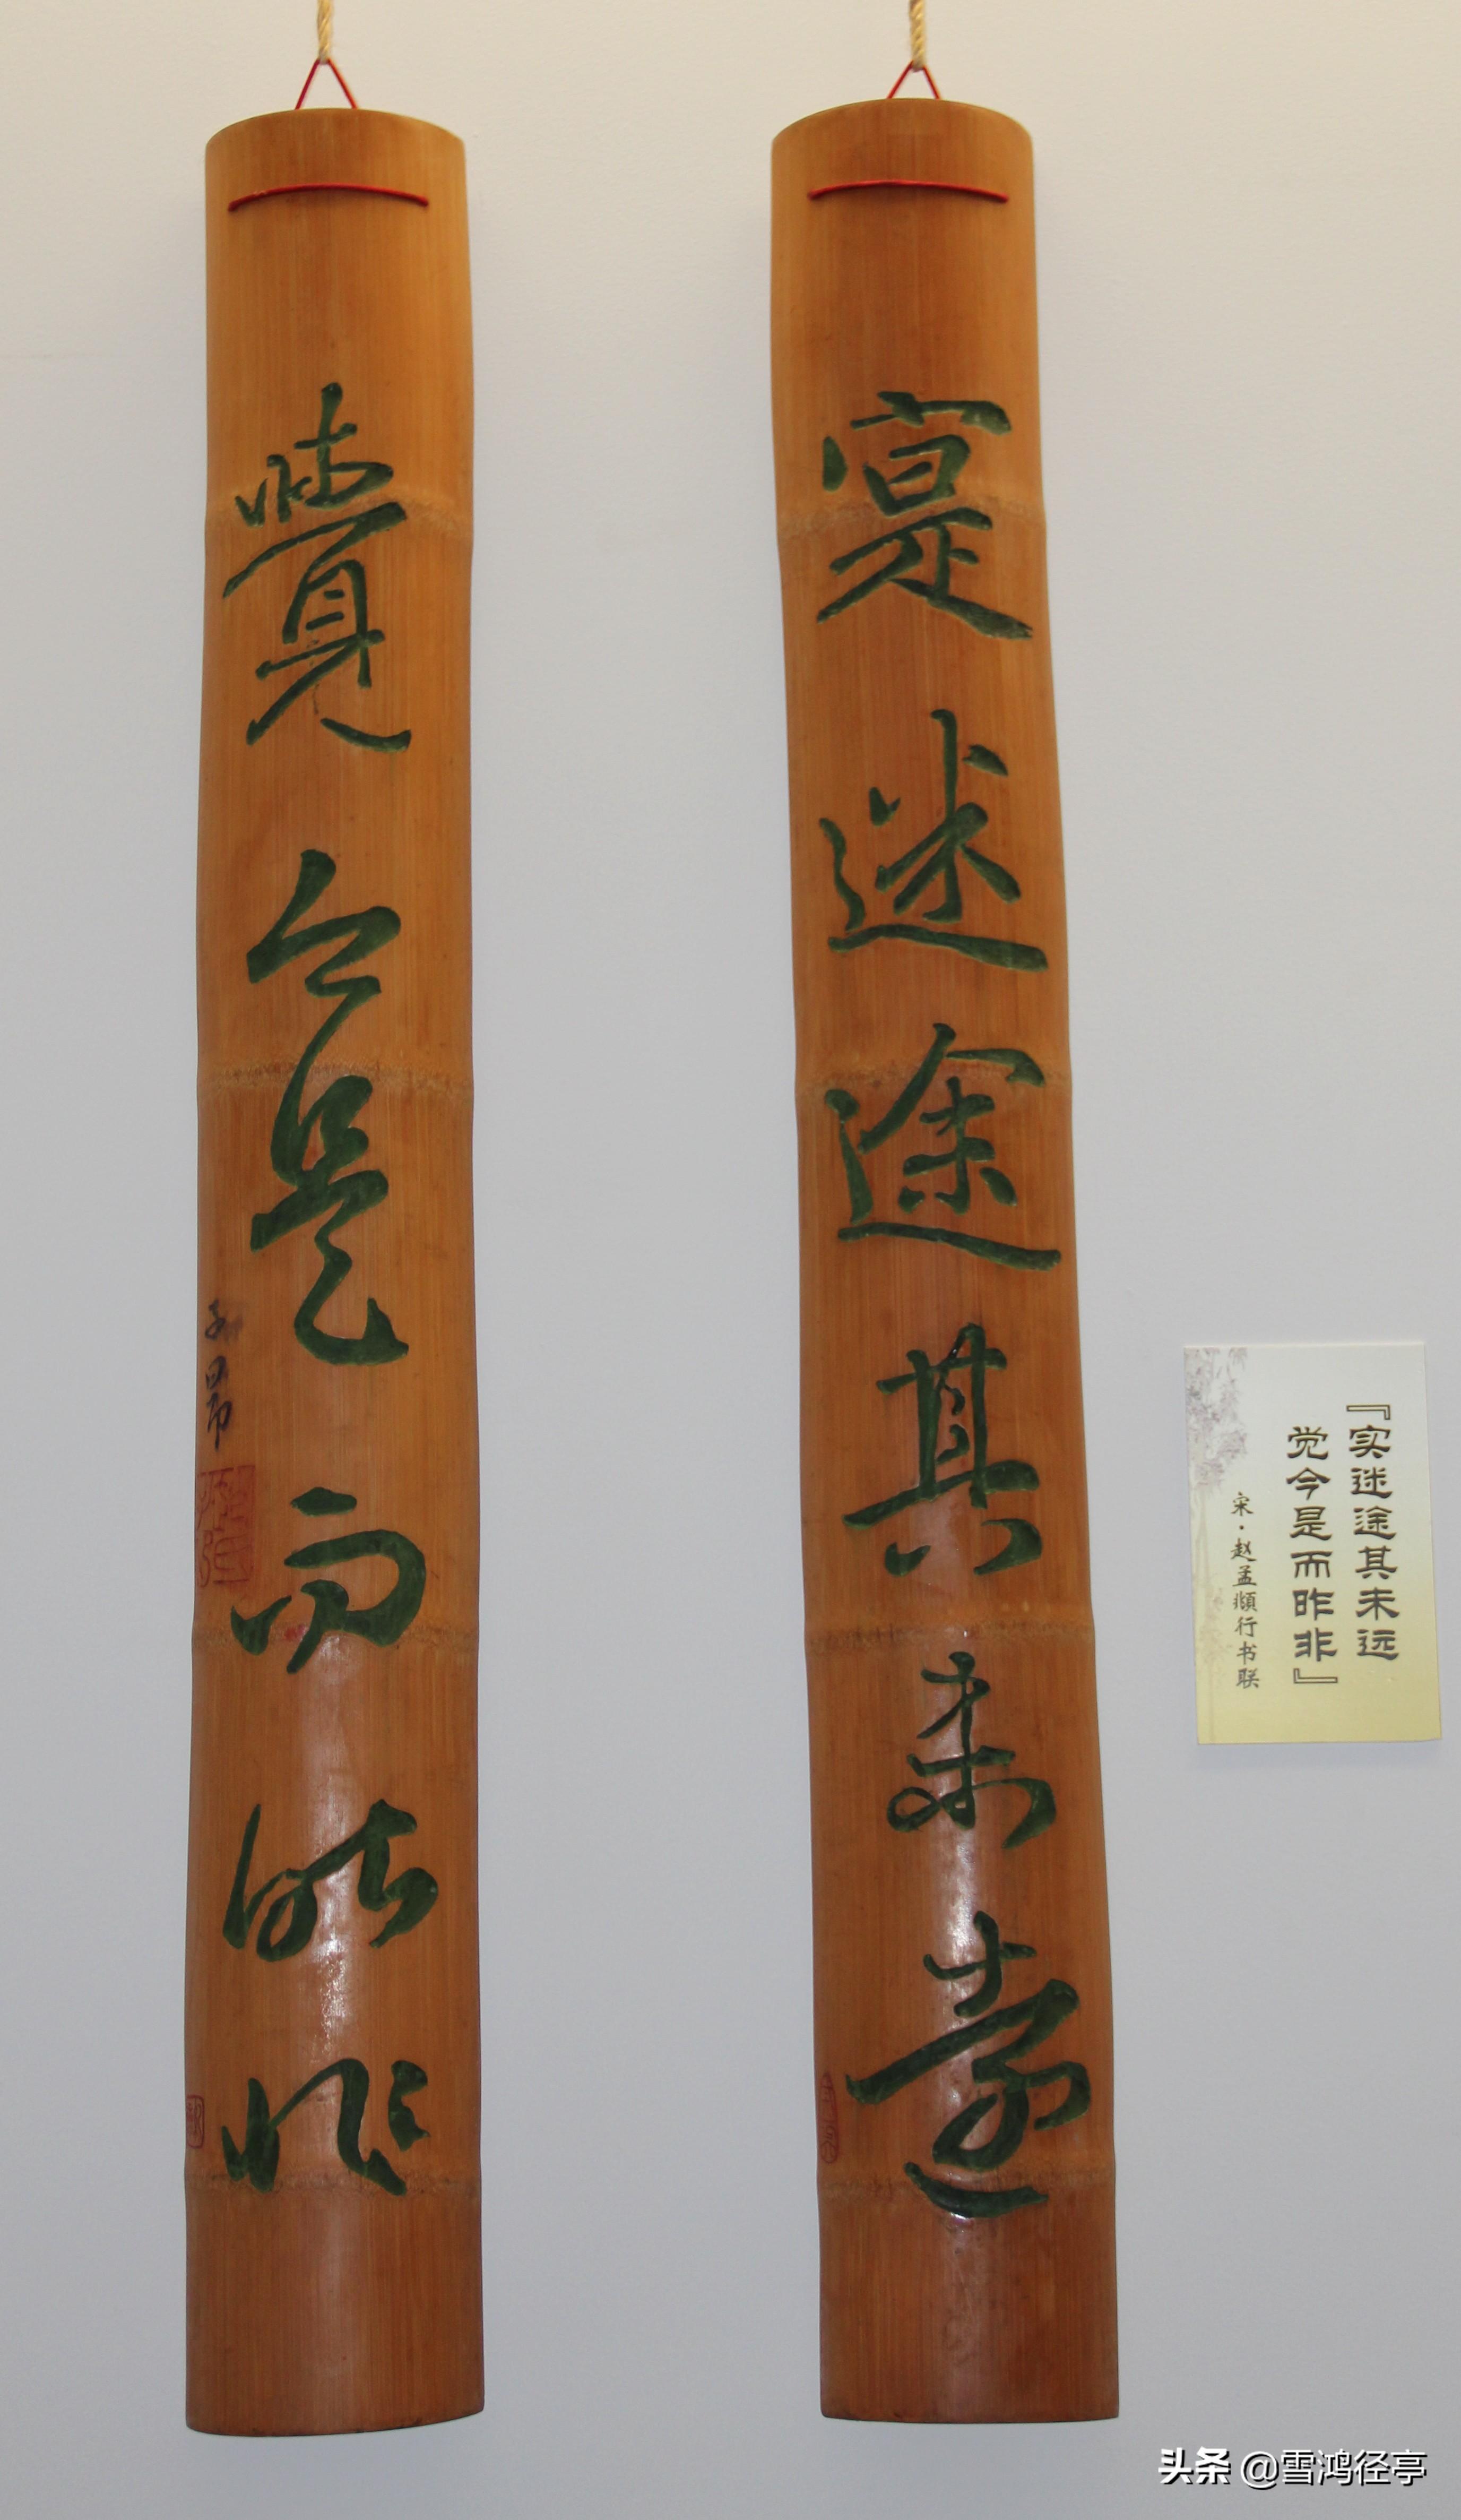 寔迷途其未遠
覺今是而昨非
子昂
『实迷途其未远
觉今是而昨非』
宋·赵孟頫行书联
头条 @雪鸿径亭